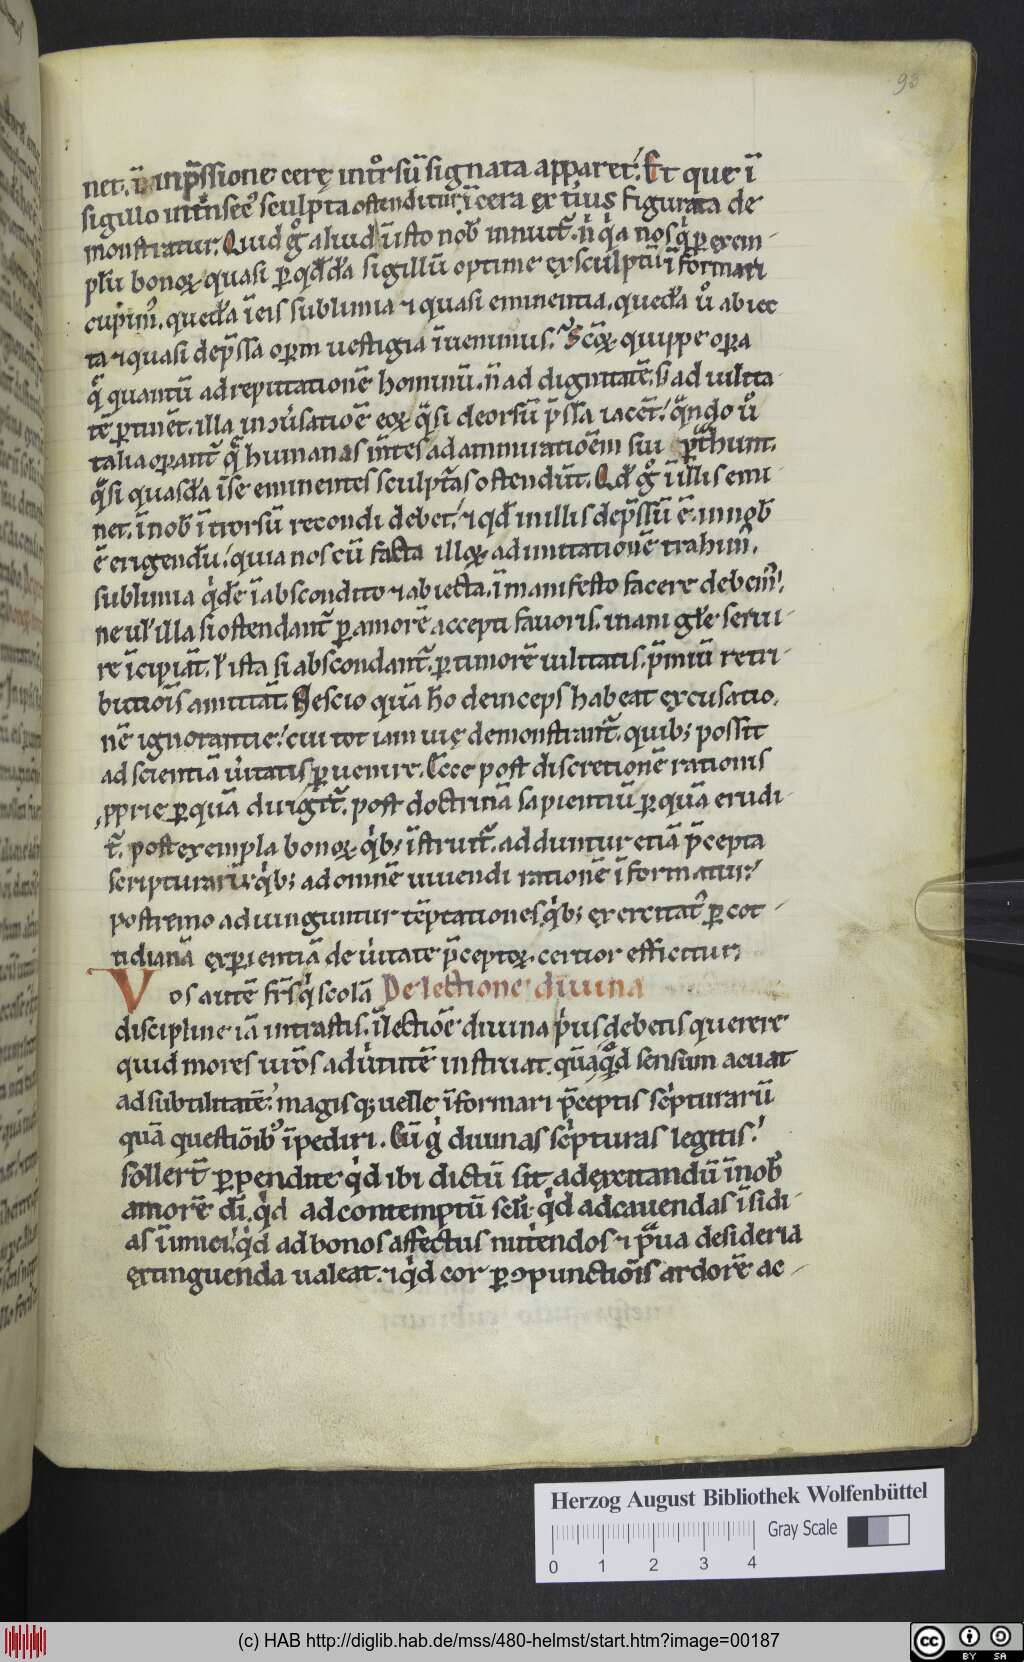 93
net. ī inp̄ssione cerę int̊rsū signata apparet. Et que ī
sigillo int̄nsec᷒ sculpta ostenditur. ī cera ext̄ius figurata de
monstratur. Quid g̊ aliud ī isto nob̄ innuit᷑. n̄ q̇a nos q̇ ꝑ exem-
plū bonoꝝ quasi ꝑ qđđa sigillū optime exsculptū ī formari
cupim᷒. queđa ī eis sublimia ⁊ quasi eminentia. queđa ů abiec
ta ⁊ quasi dep̄ssa oꝑum uestigia īuenimus. Scōꝝ quippe oꝑa
q̄ quantū ad reputationē hominū. n̄ ad dignitatē. s; ad uilita-
tē ꝑtinēt. illa in ꝯūsatiōe eoꝝ q̄si deorsū p̄ssa iacēt. q̄ndo ů
talia oꝑant᷑ q̄ humanas m̄tes ad ammiratiōem sui ꝑt̄hunt.
q̄si quasđa ī se eminentes sculpt᷑as ostendūt. Qđ g̊ ī illis emi
net. ī nob̄ ītrorsū recondi debet. ⁊ qđ in illis dep̄ssū ē. in nob̄
ē erigendū. quia nos cū facta illoꝝ ad imitationē trahim᷒.
sublimia q̇dē ī abscondito ⁊ abiecta. ī manifesto facere debem᷒.
ne ul̄ illa si ostendant᷑ ꝑ amorē accepti fauoris. inani gl̄e serui-
re īcipiāt. l̄ ista si abscondant᷑. ꝑ timorē uilitatis. p̄miū retri-
butiōis amittāt. Nescio quā h̄o deinceps habeat excusatio.
nē ignorantie. cui tot iam uię demonstrant᷑. quib; possit
ad scientiā ůitatis ꝑuenire. Ecce post discretionē rationis
ꝓprię ꝑ quā dirigit᷑. post doctrinā sapientiū ꝑ quā erudi-
t᷑. post exempla bonoꝝ q̇b; īstruit᷑. adduntur etiā p̄cepta
scripturarū q̇b; ad omnē uiuendi rationē īformatur.
postremo adiunguntur tēptationes q̇b; exercitat᷑ ꝑ cot-
tidianā exꝑientiā de ůitate p̄ceptoꝝ. certior efficitur.
Vos autē fr̄s q̇ scolā De lectione diuina
discipline iā intrastis. ī lectiōe diuina ṗus debetis querere
quid mores ur̄os ad ůtutē instruat. quā qđ sensum acuat
ad subtilitatē. magisq; uelle īformari p̄ceptis sc̄pturarū
quā questiōib᷒ īpediri. Cū g̊ diuinas sc̄pturas legitis.
sollert̄ ꝑpendite q̇d ibi dictū sit. ad exitandū ī nob̄
amorē dī. q̇d ad contemptū sc̄li. q̇d ad cauendas īsidi-
as īimici. q̇d ad bonos affectus nut̄endos ⁊ p̄ua desideria
extinguenda ualeat. ⁊ q̇d cor ꝑ ꝯpunctiōis ardorē ac-
Herzog August Bibliothek Wolfenbüttel
Gray Scale
0 1 2 3 4
(c) HAB http://diglib.hab.de/mss/480-helmst/start.htm?image=00187
cc BY SA